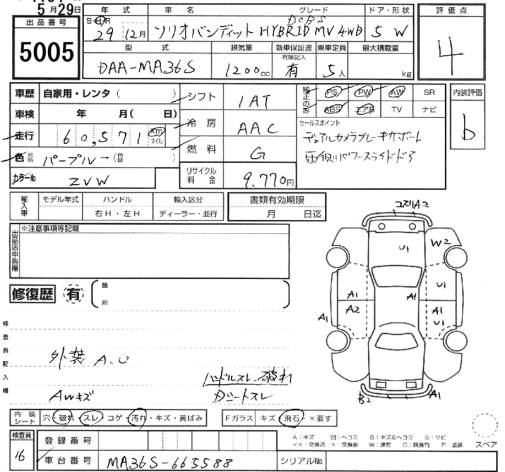 5月29日
出品番号
5005
年式 車名 グレード ドア・形状
29 12月 ソリオバンディット HYBRID MV 4WD 5 W
DCBS
型式 排気量 新車保証書 乗車定員 最大積載量
有無記入
DAA-MA36S 1200cc 有 5人 kg
評価点
4
車歴 自家用・レンタ( )
車検 年 月( 日)
走行 60,571 km マイル
色 パープル→
カラーNo ZVW
シフト 1AT
冷房 AAC
燃料 G
リサイクル料金 9,770円
PS PW AW SR
ABG エアB TV ナビ
セールスポイント
デュアルカメラブレーキサポート
内装評価
b
輸入車 モデル年式 ハンドル 輸入区分
右H・左H ディーラー・並行
書類有効期限
月 日迄
出品店申告欄
※注意事項等記載
修復歴 有
箇所
検査員記入欄
外装 A.U
AWキズ
ハンドルスレ 破れ
Dシートスレ
コスリA2
U1
W2
A1
U1
A1
A2
A1
U1
A1
B2
A1
内装シート 穴・破れ・スレ・コゲ・汚れ・キズ・黄ばみ
Fガラス キズ・飛石・×要す
A:キズ U:ヘコミ B:キズ&ヘコミ S:サビ
スペア
検査員
16
登録番号
車台番号 MA36S-665588
シリアルNo.